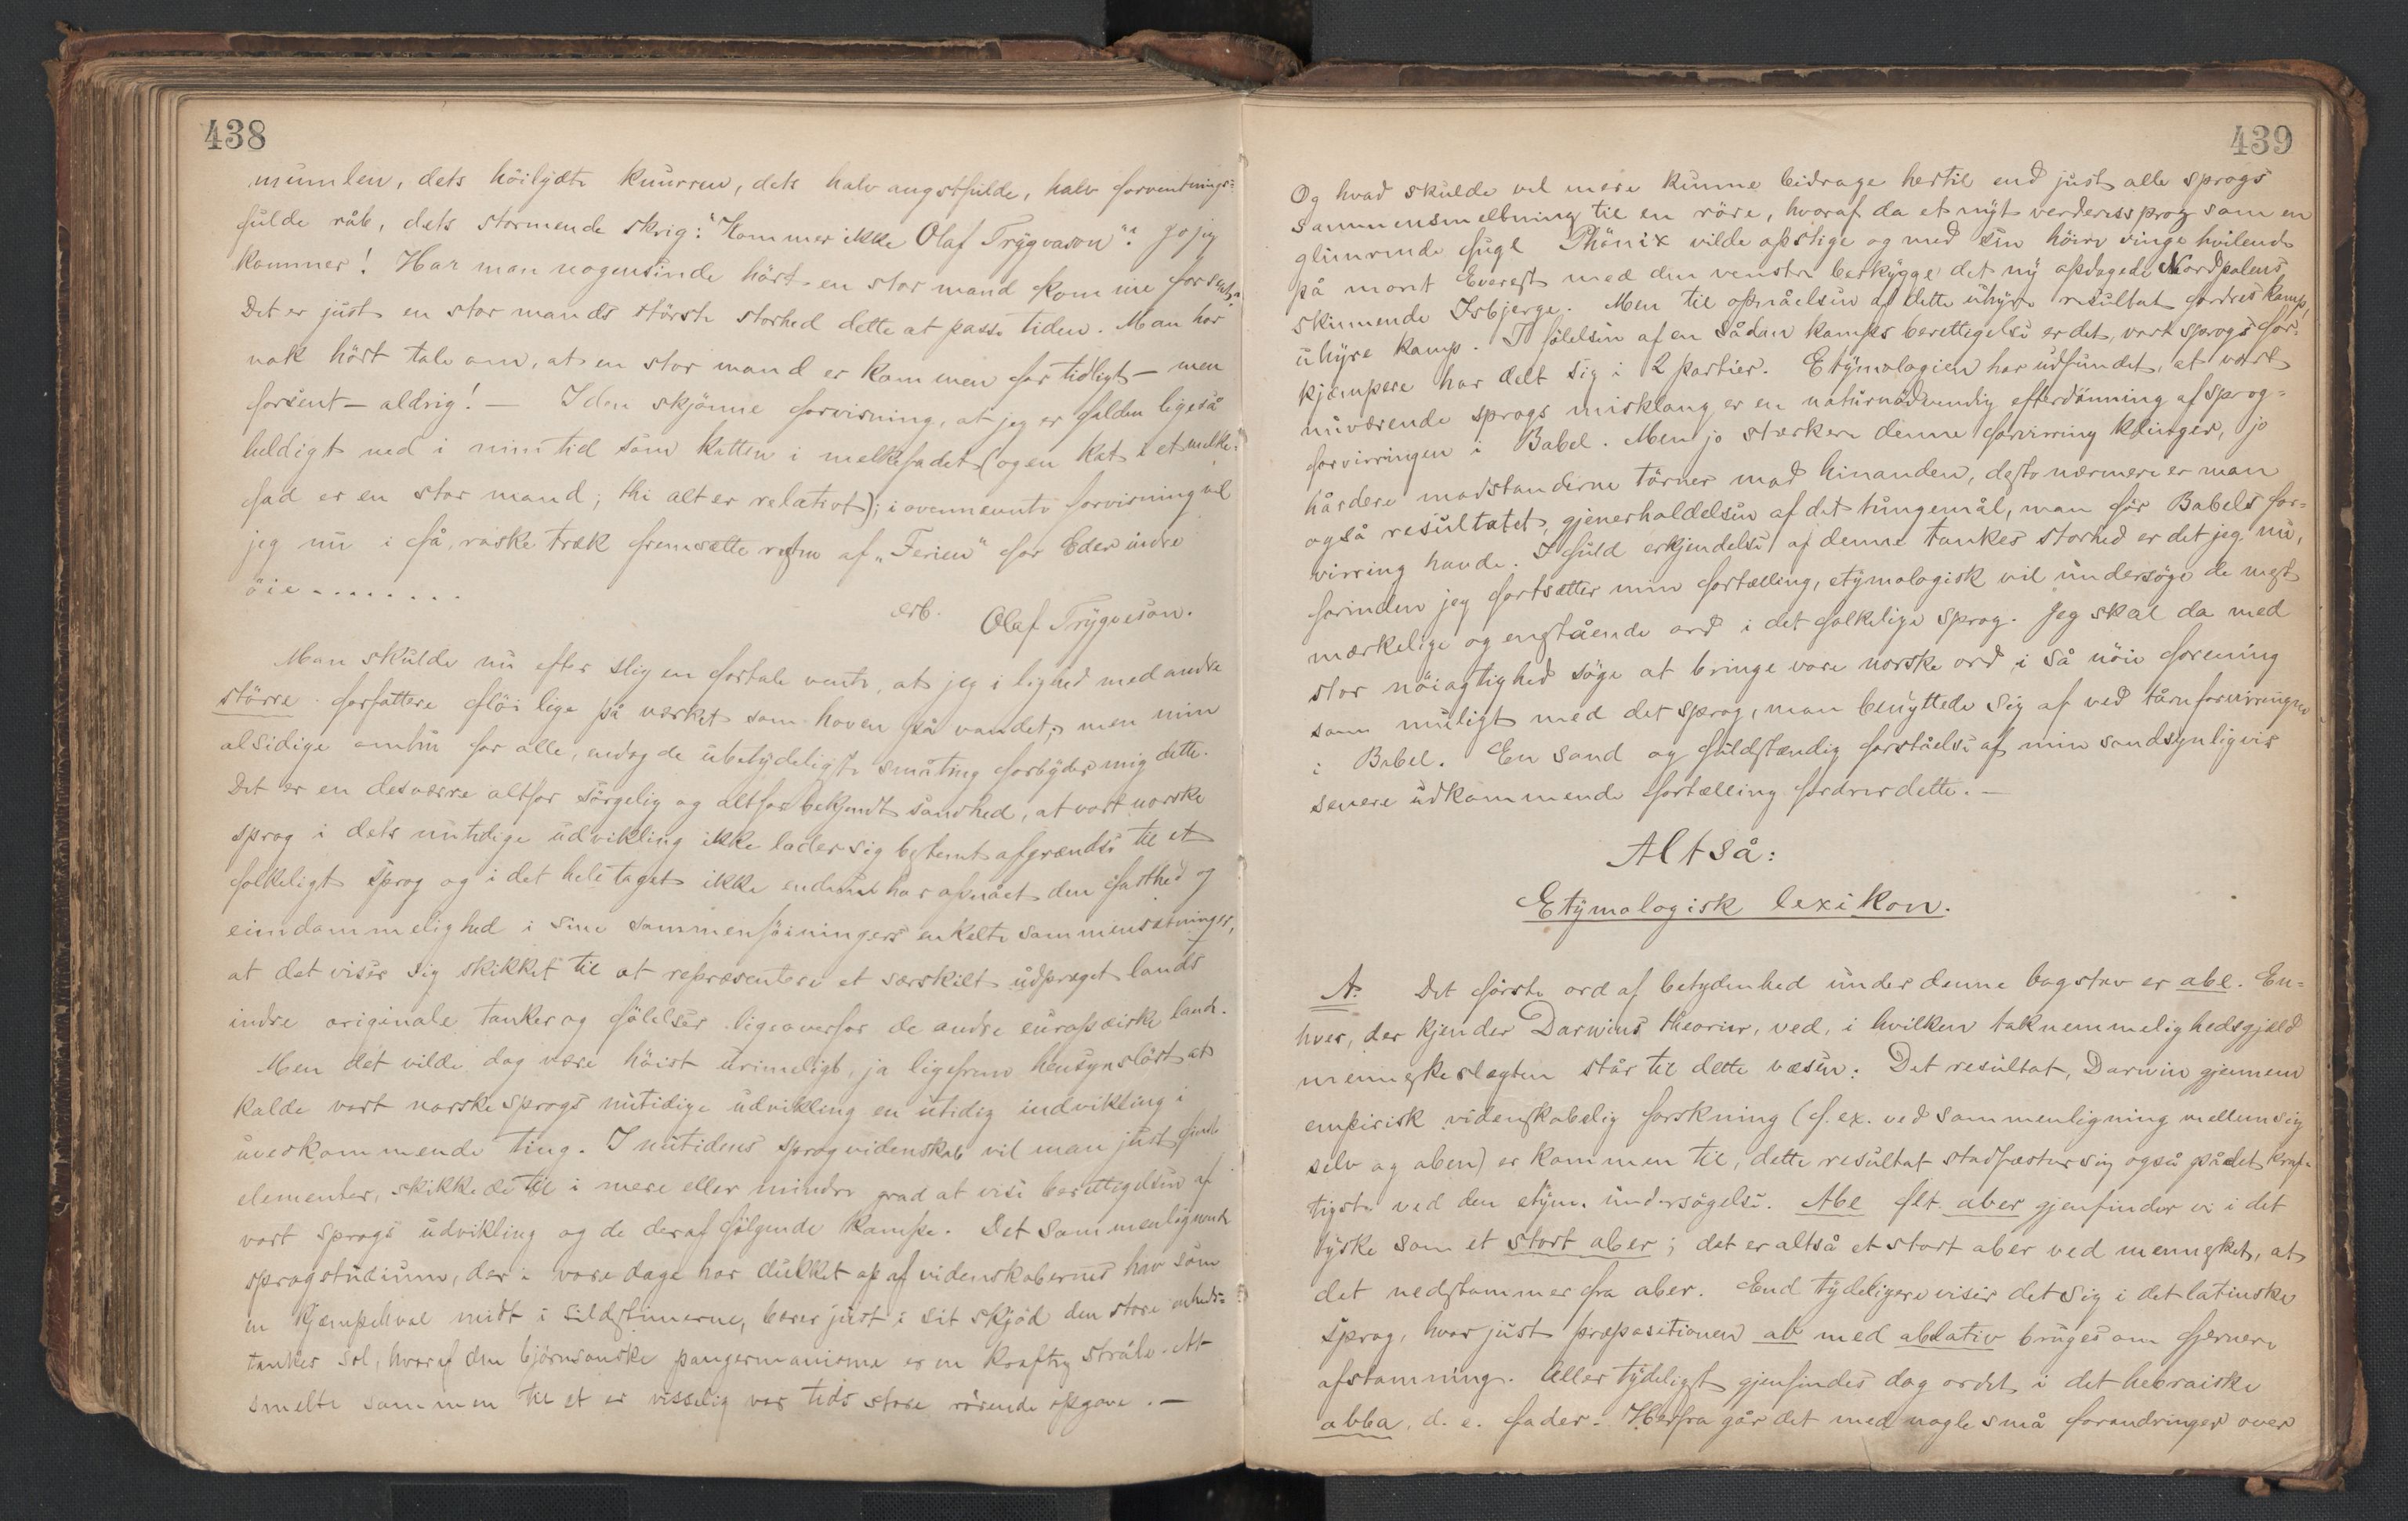 438
mumlen, dets höilydte knurren, dets halv angstfulde, halv forventnings=
fulde råb, dets stormende skrig: "Kommer ikke Olaf Trygvason"? Jo jeg
kommer! Har man nogensinde hört en stor mand komme for sent?
Det er just en stor mands störste storhed dette at passe tiden. Man har
nok hört tale om, at en stor mand er kommen for tidligt – men
forsent – aldrig! – I den skjönne forvisning, at jeg er falden ligeså
heldigt ned i min tid som katten i melkefadet (og en kat i et melke=
fad er en stor mand; thi alt er relativt); i ovennevnte forvisning vil
jeg nu i få, raske træk fremsætte af „Ferien" for Eder indre
öie - - - - - - - -
erb. Olaf Trygveson.
Man skulde nu efter slig en fortale vente, at jeg i lighed med andre
större forfattere flöi lige på verket som haven på vandet; men min
alsidige omhu for alle, endog de ubetydeligste småting forbyder mig dette.
Det er en desværre altfor sörgelig og altfor bekjendt sandhed, at vort norske
sprog i dets nutidige udvikling ikke lader sig bestemt afgrændse til et
folkeligt sprog og i det hele taget ikke endnu har opnået den fasthed og
eiendommelighed i sine sammenföiningers enkelte sammensetninger,
at det viser sig skikket til at repræsentere et særskilt udpræget lands
indre originale tanker og fölelser ligeoverfor de andre europæiske lande.
Men det vilde dog være höist urimeligt, ja ligefrem hensynslöst at
kalde vort norske sprogs nutidige udvikling en utidig indvikling i
uvedkommende ting. I nutidens sprogvidenskab vil man just finde
elementer, skikkede til i mere eller mindre grad at vise berettigelsen af
vort sprogs udvikling og de deraf fölgende kampe. Det sammenlignende
sprogstudium, der i vore dage har dukket op af videnskabernes hav som
en kjæmpehval midt i sildstimerne, bærer just i sit skjöd den store enheds=
tankes sol, hvoraf den björnsonske pangermanisme er en kraftig stråle. At
smelte sammen til et er visselig vor tids store rörende opgave. –
439
Og hvad skulde vel mere kunne bidrage hertil end just alle sprogs
sammensmeltning til en röre, hvoraf da et nyt verdenssprog som en
glimrende fugl Phönix vilde opstige og med sin höire vinge hvilende
på mont Everest med den venstre beskygge det ny opdagede Nordpolens
skinnende Isbjerge. Men til opnåelsen af dette uhyre resultat fordres kamp,
uhyre kamp. I fölelsen af en sådan kamps berettigelse er det, vort sprogs for=
kjæmpere har delt sig i 2 partier. Etymologien har udfundet, at vort
nuværende sprogs misklang er en naturnödvendig efterdönning af sprog=
forvirringen i Babel. Men jo stærkere denne forvirring klinger, jo
hårdere modstanderne törner mod hinanden, desto nærmere er man
også resultatet, gjenerholdelsen af det tungemål, man för Babels for=
virring havde. I fuld erkjendelse af denne tankes storhed er det jeg nu,
forinden jeg fortsætter min fortælling, etymologisk vil undersöge de mest
mærkelige og enstående ord i det folkelige sprog. Jeg skal da med
stor nöiagtighed söge at bringe vore norske ord i så nöie forening
som muligt med det sprog, man benyttede sig af ved tårnforvirringen
i Babel. En sand og fuldstændig forståelse af min sandsynligvis
senere udkommende fortælling fordrer dette. –
Altså:
Etymologisk lexikon.
A. Det förste ord af betydenhed under denne bogstav er abe. En=
hver, der kjender Darwins theorier, ved, i hvilken taknemmelighedsgjæld
menneskeslegten står til dette væsen. Det resultat, Darwin gjennem
empirisk videnskabelig forskning (f. ex. ved sammenligning mellem sig
selv og aben) er kommen til, dette resultat stadfæster sig også på det kraf=
tigste ved den etym. undersögelse. Abe flt. aber gjenfinder vi i det
tyske som et stort aber; det er altså et stort aber ved mennesket, at
det nedstammer fra aber. End tydeligere viser det sig i det latinske
sprog, hvor just præpositionen ab med ablativ bruges om fjernere
afstamning. Aller tydeligst gjenfindes dog ordet i det hebraiske
abba, d. e. fader. Herfra går det med nogle små forandringer over